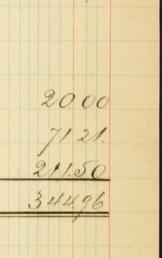 20.00
71 21.
211.50
344.96